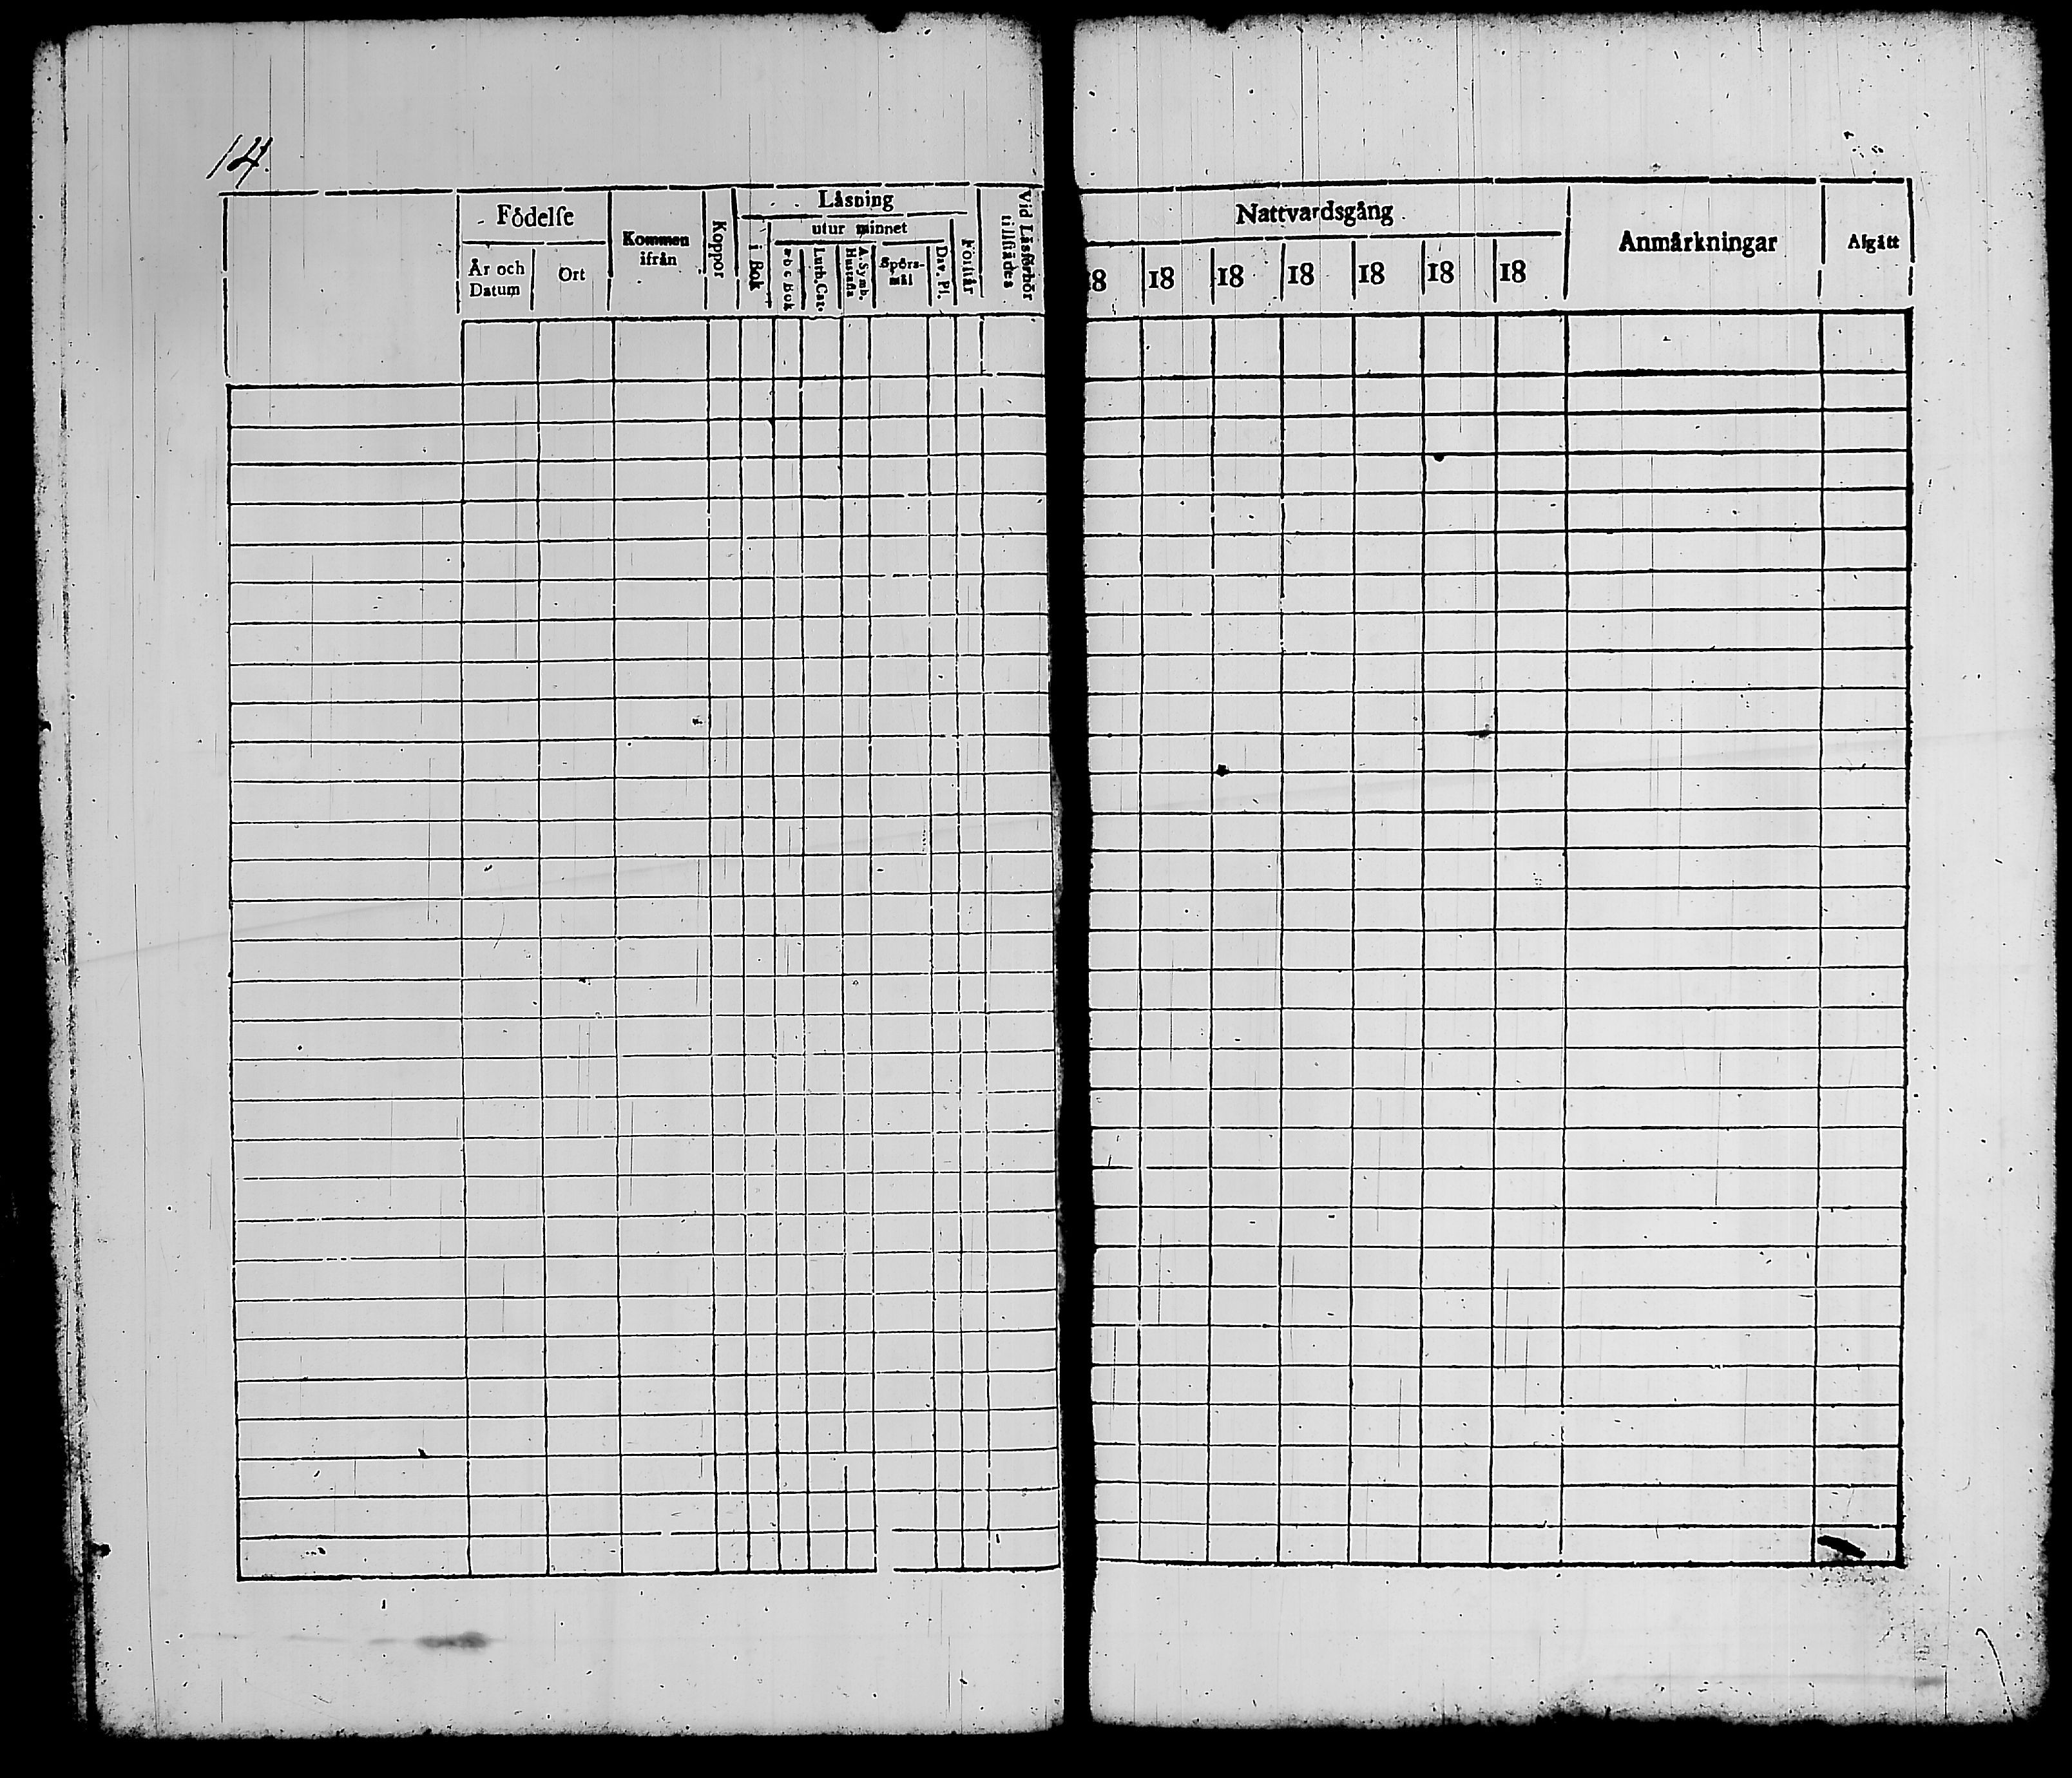 14.
Födelse
År och Datum
Ort
Kommen ifrån
Koppor
Läsning
i Bok
utur minnet
a b c Bok
Luth. Cat.
A. Symb. Hustafla
Spörs-mål
Dav. Ps.
Förstår
Vid Läsförhör tillstädes
Nattvardsgång
18 18 18 18 18 18 18
Anmärkningar
Afgått